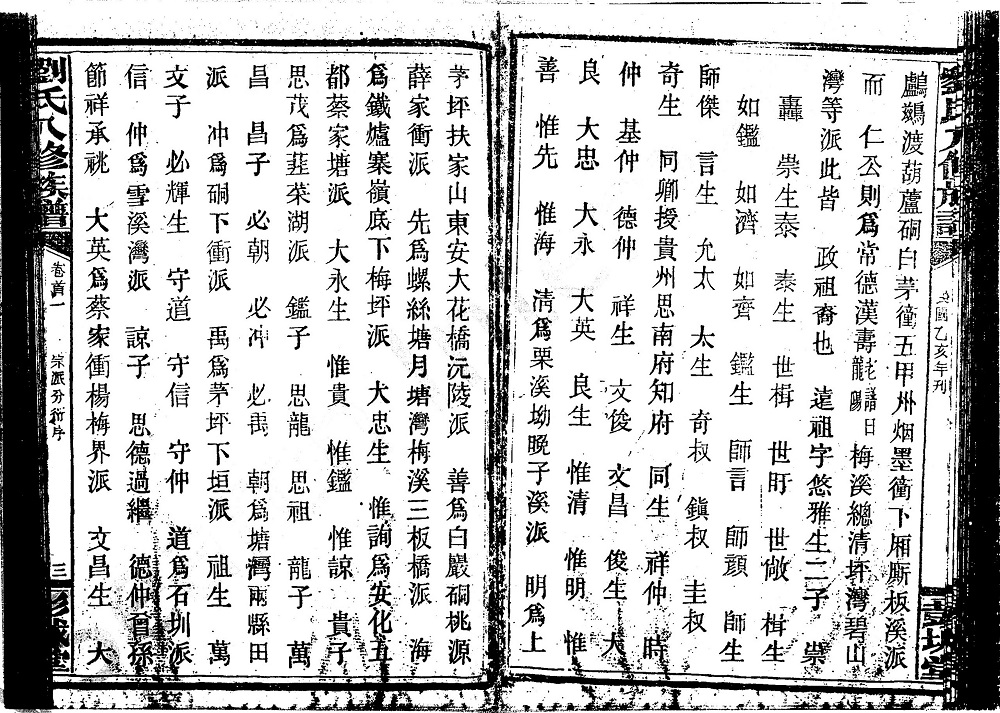 民國乙亥年刊
鸕鷀渡葫蘆硐白茅衝五甲州烟墨衝下厢厮板溪派
而 仁公則爲常德漢壽龍陽老譜曰梅溪總清坪灣碧山
灣等派此皆 政祖裔也 遠祖字悠雅生二子 崇
轟 崇生泰 泰生 世楫 世盱 世倣 楫生
如鑑 如濟 如齊 鑑生 師言 師顔 師生
師傑 言生 允太 太生 奇叔 鎮叔 圭叔
奇生 同卿授貴州思南府知府 同生 祥仲 時
仲 基仲 德仲 祥生 文俊 文昌 俊生 大
良 大忠 大永 大英 良生 惟清 惟明 惟
善 惟先 惟海 清爲栗溪坳晚子溪派 明爲上
茅坪扶家山東安大花橋沅陵派 善爲白巖硐桃源
薛家衝派 先爲螺絲塘月塘灣梅溪三板橋派 海
爲鐵爐寨嶺底下梅坪派 大忠生 惟詢爲安化五
都蔡家塘派 大永生 惟貴 惟鑑 惟諒 貴子
思茂爲韮菜湖派 鑑子 思龍 思祖 龍子 萬
昌 昌子 必朝 必冲 必禹 朝爲塘灣兩縣田
派 冲爲硐下衝派 禹爲茅坪下垣派 祖生 萬
文子 必輝生 守道 守信 守仲 道爲石圳派
信 仲爲雪溪灣派 諒子 思德過繼 德仲百孫
節祥承祧 大英爲蔡家衝楊梅界派 文昌生 大
劉氏八修族譜
卷首一
崇派分衍序
三
彭城堂